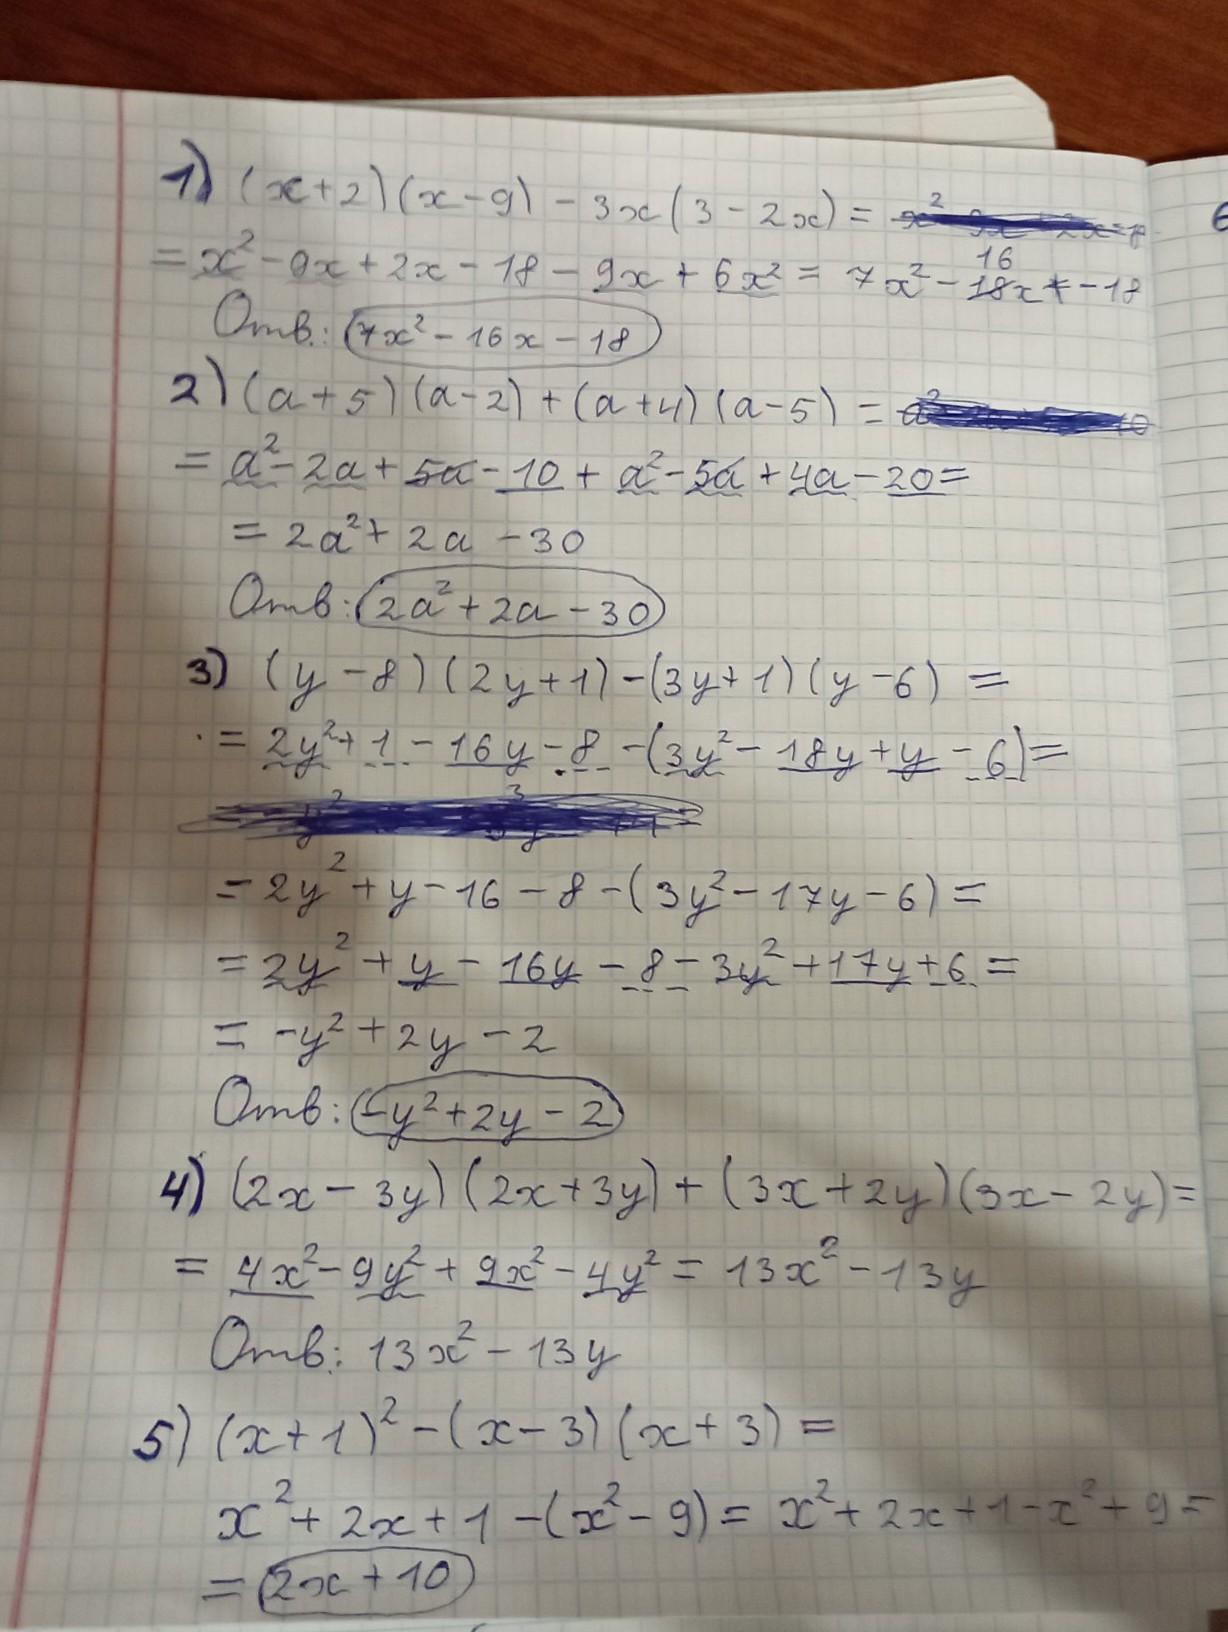 1) (x+2)(x-9) - 3x(3-2x) =
= x² - 9x + 2x - 18 - 9x + 6x² = 7x² - 16x - 18
Отв.: 7x² - 16x - 18
2) (a+5)(a-2) + (a+4)(a-5) =
= a² - 2a + 5a - 10 + a² - 5a + 4a - 20 =
= 2a² + 2a - 30
Отв: 2a² + 2a - 30
3) (y-8)(2y+1) - (3y+1)(y-6) =
= 2y² + 1 - 16y - 8 - (3y² - 18y + y - 6) =
= 2y² + y - 16 - 8 - (3y² - 17y - 6) =
= 2y² + y - 16y - 8 - 3y² + 17y + 6 =
= -y² + 2y - 2
Отв: -y² + 2y - 2
4) (2x - 3y)(2x+3y) + (3x+2y)(3x-2y) =
= 4x² - 9y² + 9x² - 4y² = 13x² - 13y
Отв: 13x² - 13y
5) (x+1)² - (x-3)(x+3) =
x² + 2x + 1 - (x² - 9) = x² + 2x + 1 - x² + 9 =
= 2x + 10